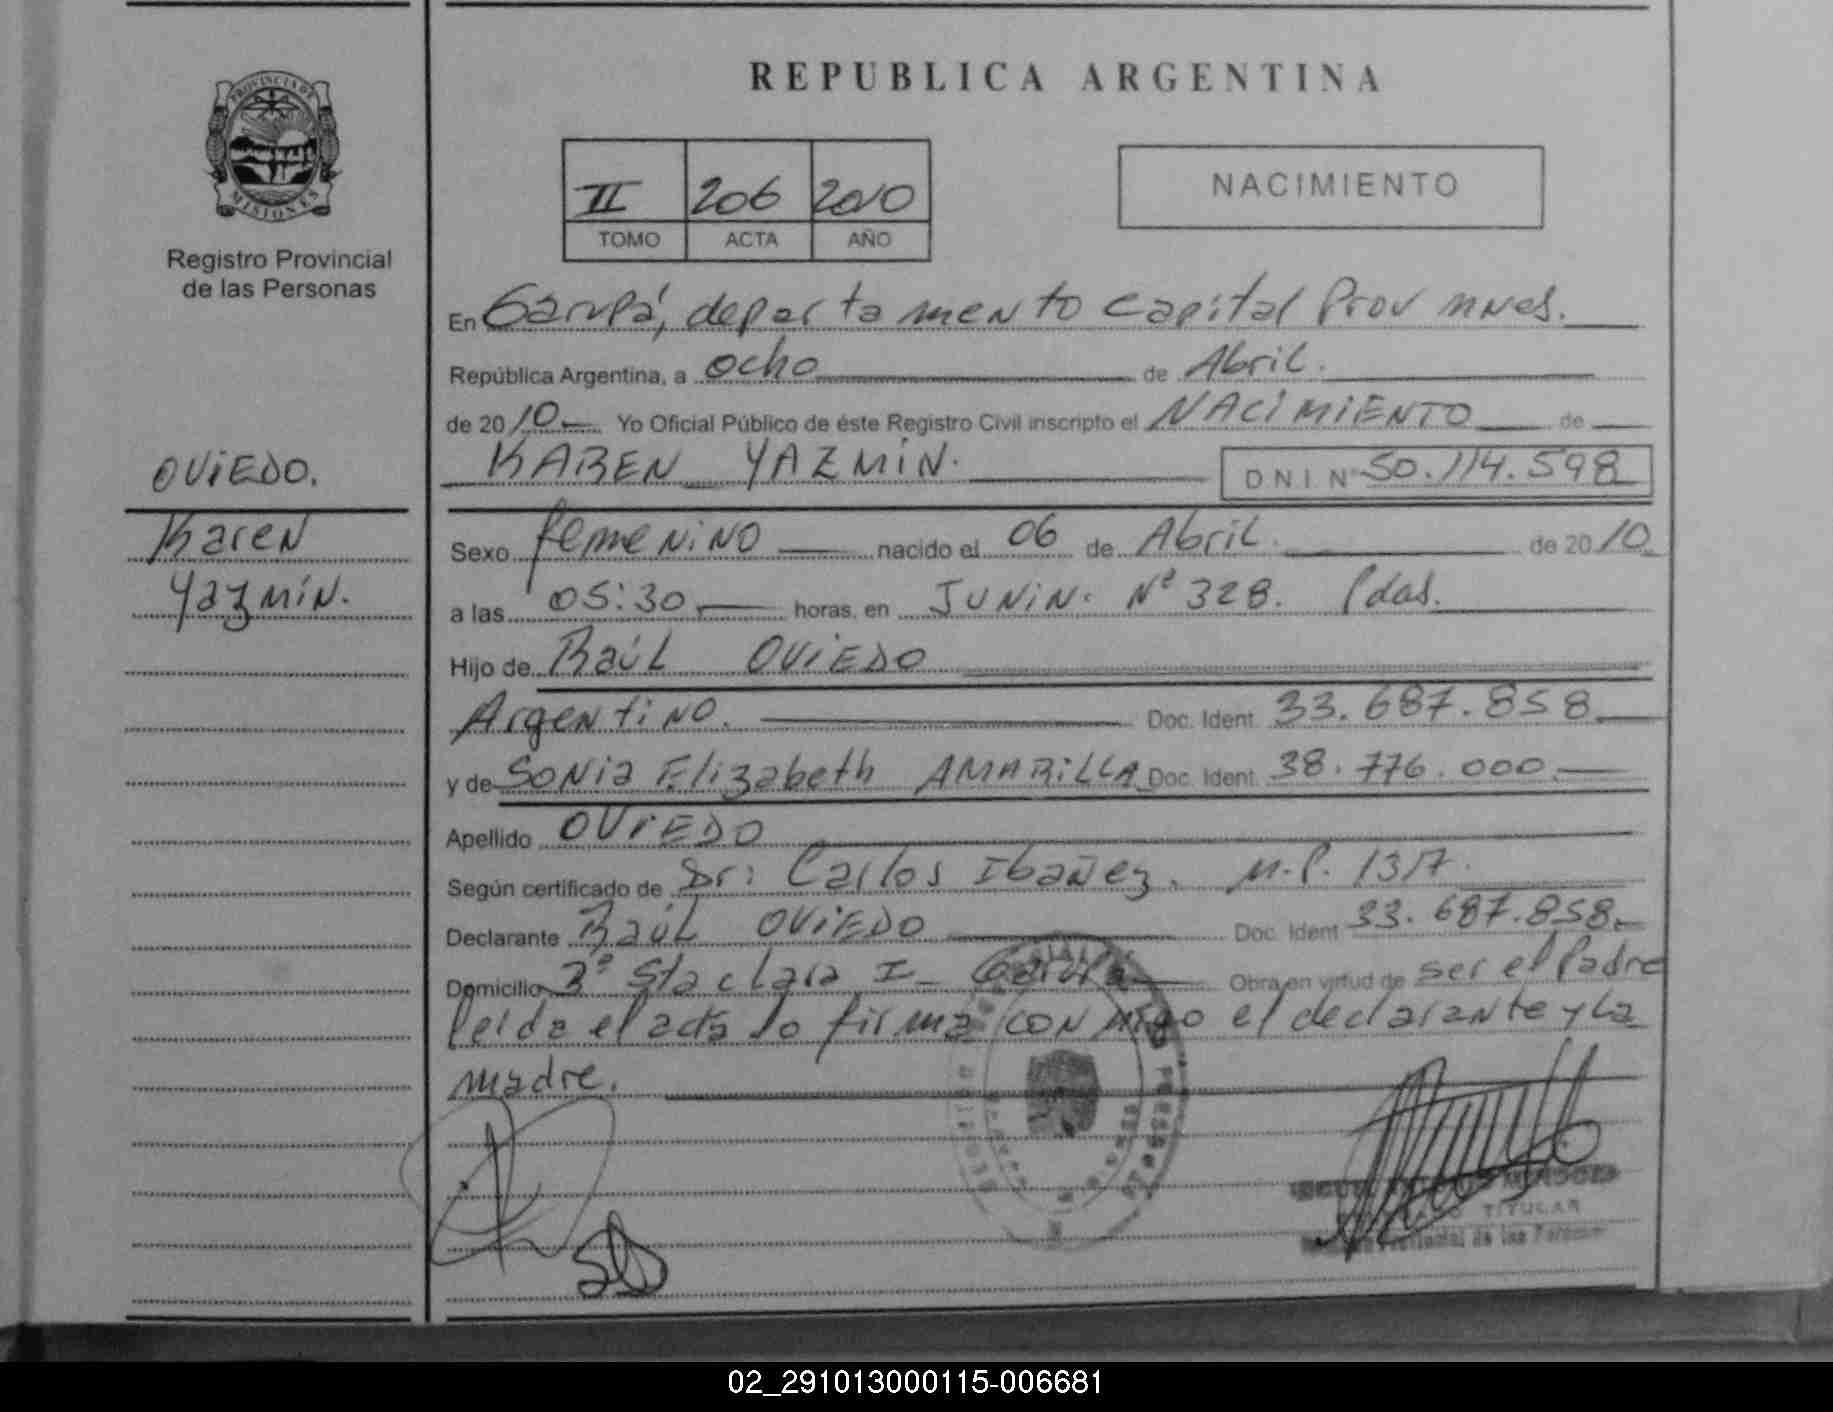 REPUBLICA ARGENTINA
PROVINCIA DE
MISIONES
Registro Provincial
de las Personas
II 206 2010
TOMO ACTA AÑO
NACIMIENTO
En Garupá, departamento Capital Prov Mnes.
República Argentina, a ocho de Abril.
de 2010 Yo Oficial Público de éste Registro Civil inscripto el NACIMIENTO de
KAREN YAZMIN. DNI Nº 50.114.598
OVIEDO.
Karen
Yazmín.
Sexo femenino nacido el 06 de Abril. de 2010
a las 05:30 horas, en JUNIN. Nº 328. Pdas.
Hijo de RAÚL OVIEDO
Argentino. Doc. Ident. 33.687.858
y de Sonia Elizabeth AMARILLA Doc. Ident. 38.776.000
Apellido OVIEDO
Según certificado de Dr: Carlos Ibañez. M.P. 1317.
Declarante RAÚL OVIEDO Doc. Ident 33.687.858
Domicilio Bº Sta clara I - Garupa Obra en virtud de ser el Padre
leida el acta lo firma conmigo el declarante y la
madre.
TITULAR
Provincial de las Personas
02_291013000115-006681